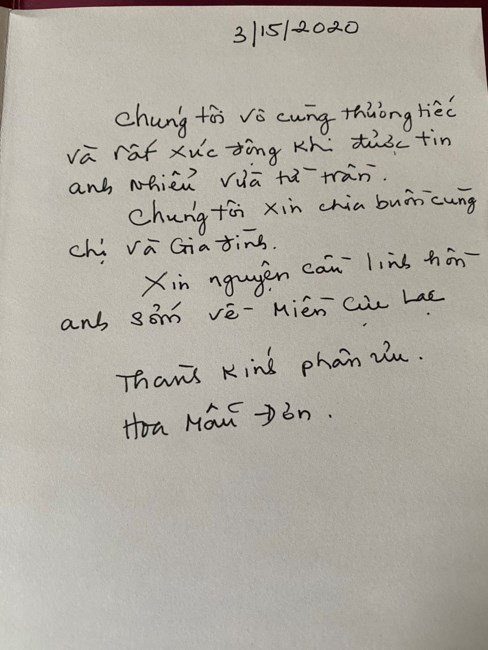 3/15/2020
Chúng tôi vô cùng thương tiếc
và rất xúc động khi được tin
anh Nhiều vừa từ trần.
Chúng tôi xin chia buồn cùng
chị và Gia đình.
Xin nguyện cầu linh hồn
anh sớm về - Miền Cực Lạc
Thành Kính phân ưu.
Hoa Mẫu Đơn.